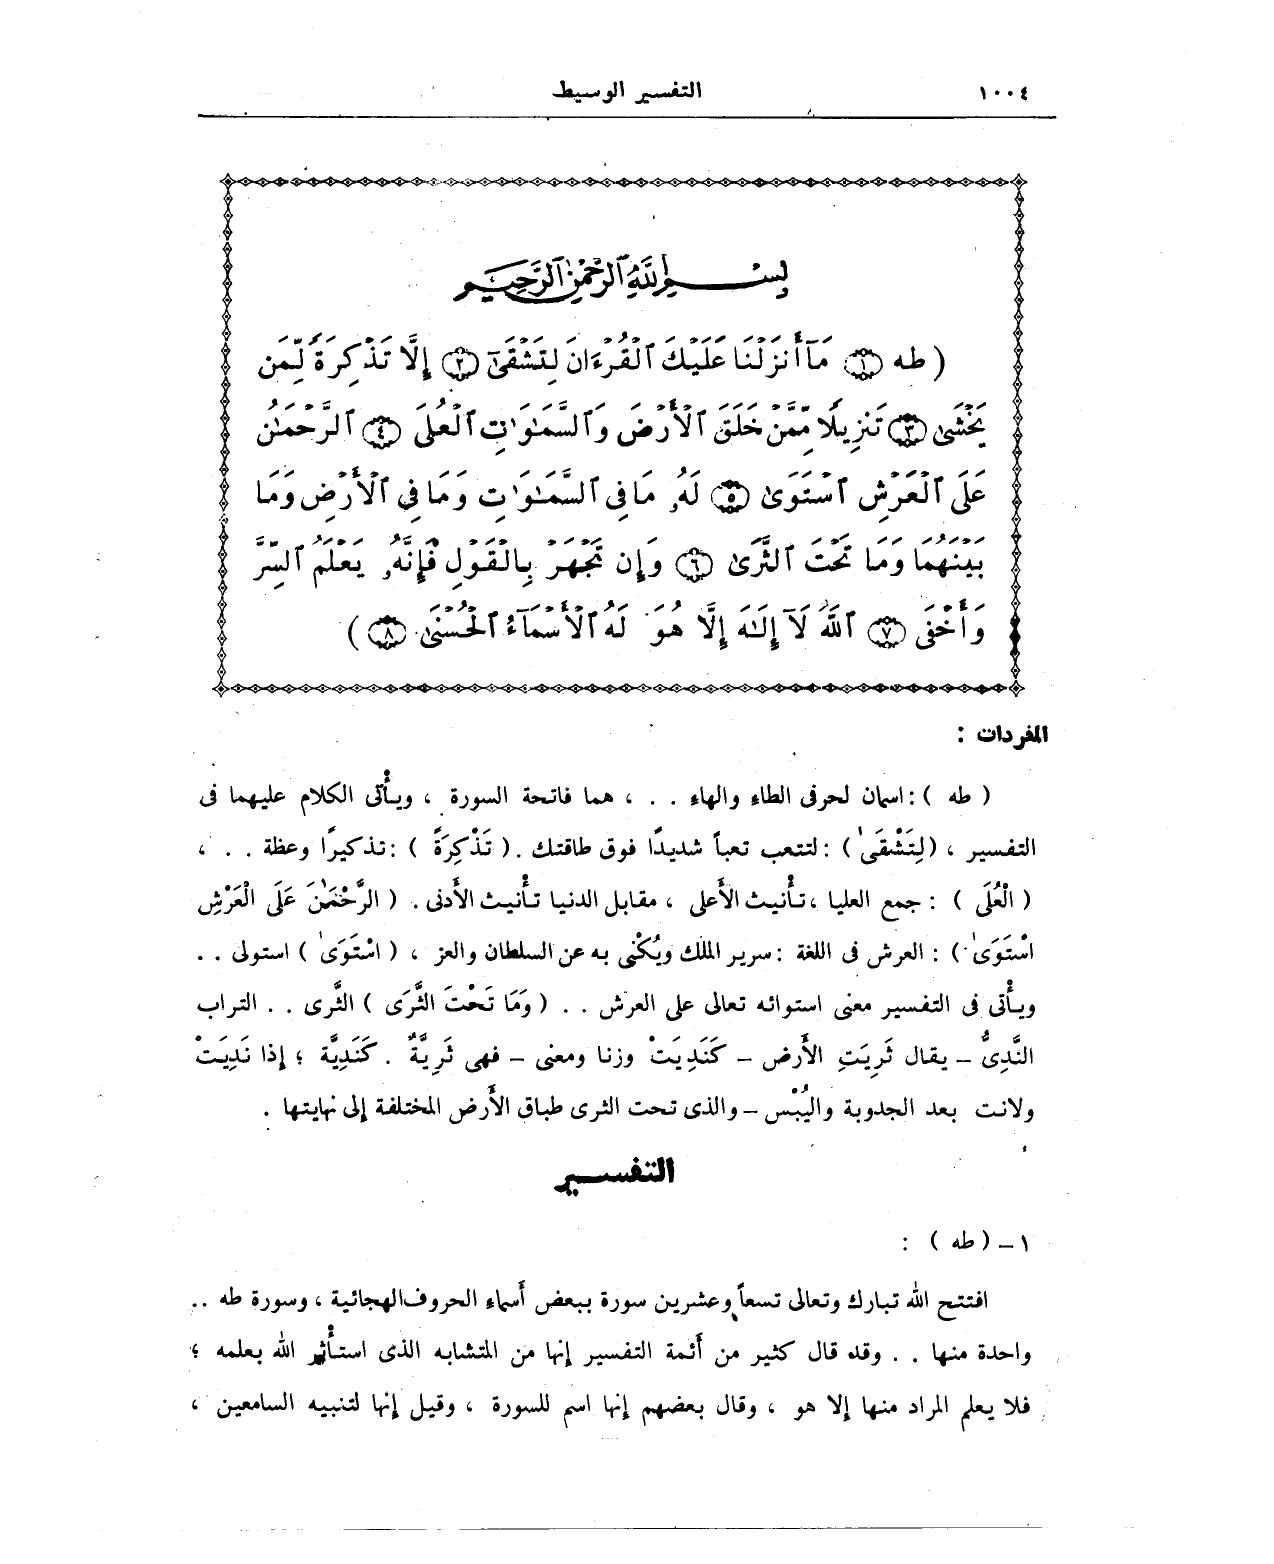 ١٠٠٤ التفسير الوسيط
بِسْمِ اللَّهِ الرَّحْمَٰنِ الرَّحِيمِ
( طه ١ مَآ أَنزَلْنَا عَلَيْكَ ٱلْقُرْءَانَ لِتَشْقَىٰٓ ٢ إِلَّا تَذْكِرَةً لِّمَن
يَخْشَىٰ ٣ تَنزِيلًا مِّمَّنْ خَلَقَ ٱلْأَرْضَ وَٱلسَّمَٰوَٰتِ ٱلْعُلَى ٤ ٱلرَّحْمَٰنُ
عَلَى ٱلْعَرْشِ ٱسْتَوَىٰ ٥ لَهُۥ مَا فِى ٱلسَّمَٰوَٰتِ وَمَا فِى ٱلْأَرْضِ وَمَا
بَيْنَهُمَا وَمَا تَحْتَ ٱلثَّرَىٰ ٦ وَإِن تَجْهَرْ بِٱلْقَوْلِ فَإِنَّهُۥ يَعْلَمُ ٱلسِّرَّ
وَأَخْفَى ٧ ٱللَّهُ لَآ إِلَٰهَ إِلَّا هُوَ لَهُ ٱلْأَسْمَآءُ ٱلْحُسْنَىٰ ٨ )
المفردات :
( طه ) : اسمان لحرفى الطاء والهاء . . ، هما فاتحة السورة ، ويأْتى الكلام عليهما فى
التفسير ، ( لِتَشْقَىٰ ) : لتتعب تعباً شديدًا فوق طاقتك . ( تَذْكِرَةً ) : تذكيرًا وعظة . . ،
( الْعُلَى ) : جمع العليا ، تأْنيث الأَعلى ، مقابل الدنيا تأْنيث الأَدنى . ( الرَّحْمَٰنَ عَلَى الْعَرْشِ
اسْتَوَىٰ ) : العرش فى اللغة : سرير الملك ويُكْنَى به عن السلطان والعز ، ( اسْتَوَىٰ ) استولى . .
ويأْتى فى التفسير معنى استوائه تعالى على العرش . . ( وَمَا تَحْتَ الثَّرَى ) الثَّرى . . التراب
النَّدِىُّ – يقال ثَرِيَتِ الأَرض – كَنَدِيَتْ وزنا ومعنى – فهى ثَرِيَّةٌ . كَنَدِيَّة ؛ إذا نَدِيَتْ
ولانت بعد الجدوبة واليُبْس – والذى تحت الثرى طباق الأَرض المختلفة إلى نهايتها .
التفسير
١ – ( طه ) :
افتتح الله تبارك وتعالى تسعاً وعشرين سورة ببعض أَسماء الحروف الهجائية ، وسورة طه ..
واحدة منها . . وقد قال كثير من أَئمة التفسير إنها من المتشابه الذى استأْثر الله بعلمه ؛
فلا يعلم المراد منها إلا هو ، وقال بعضهم إنها اسم للسورة ، وقيل إنها لتنبيه السامعين ،